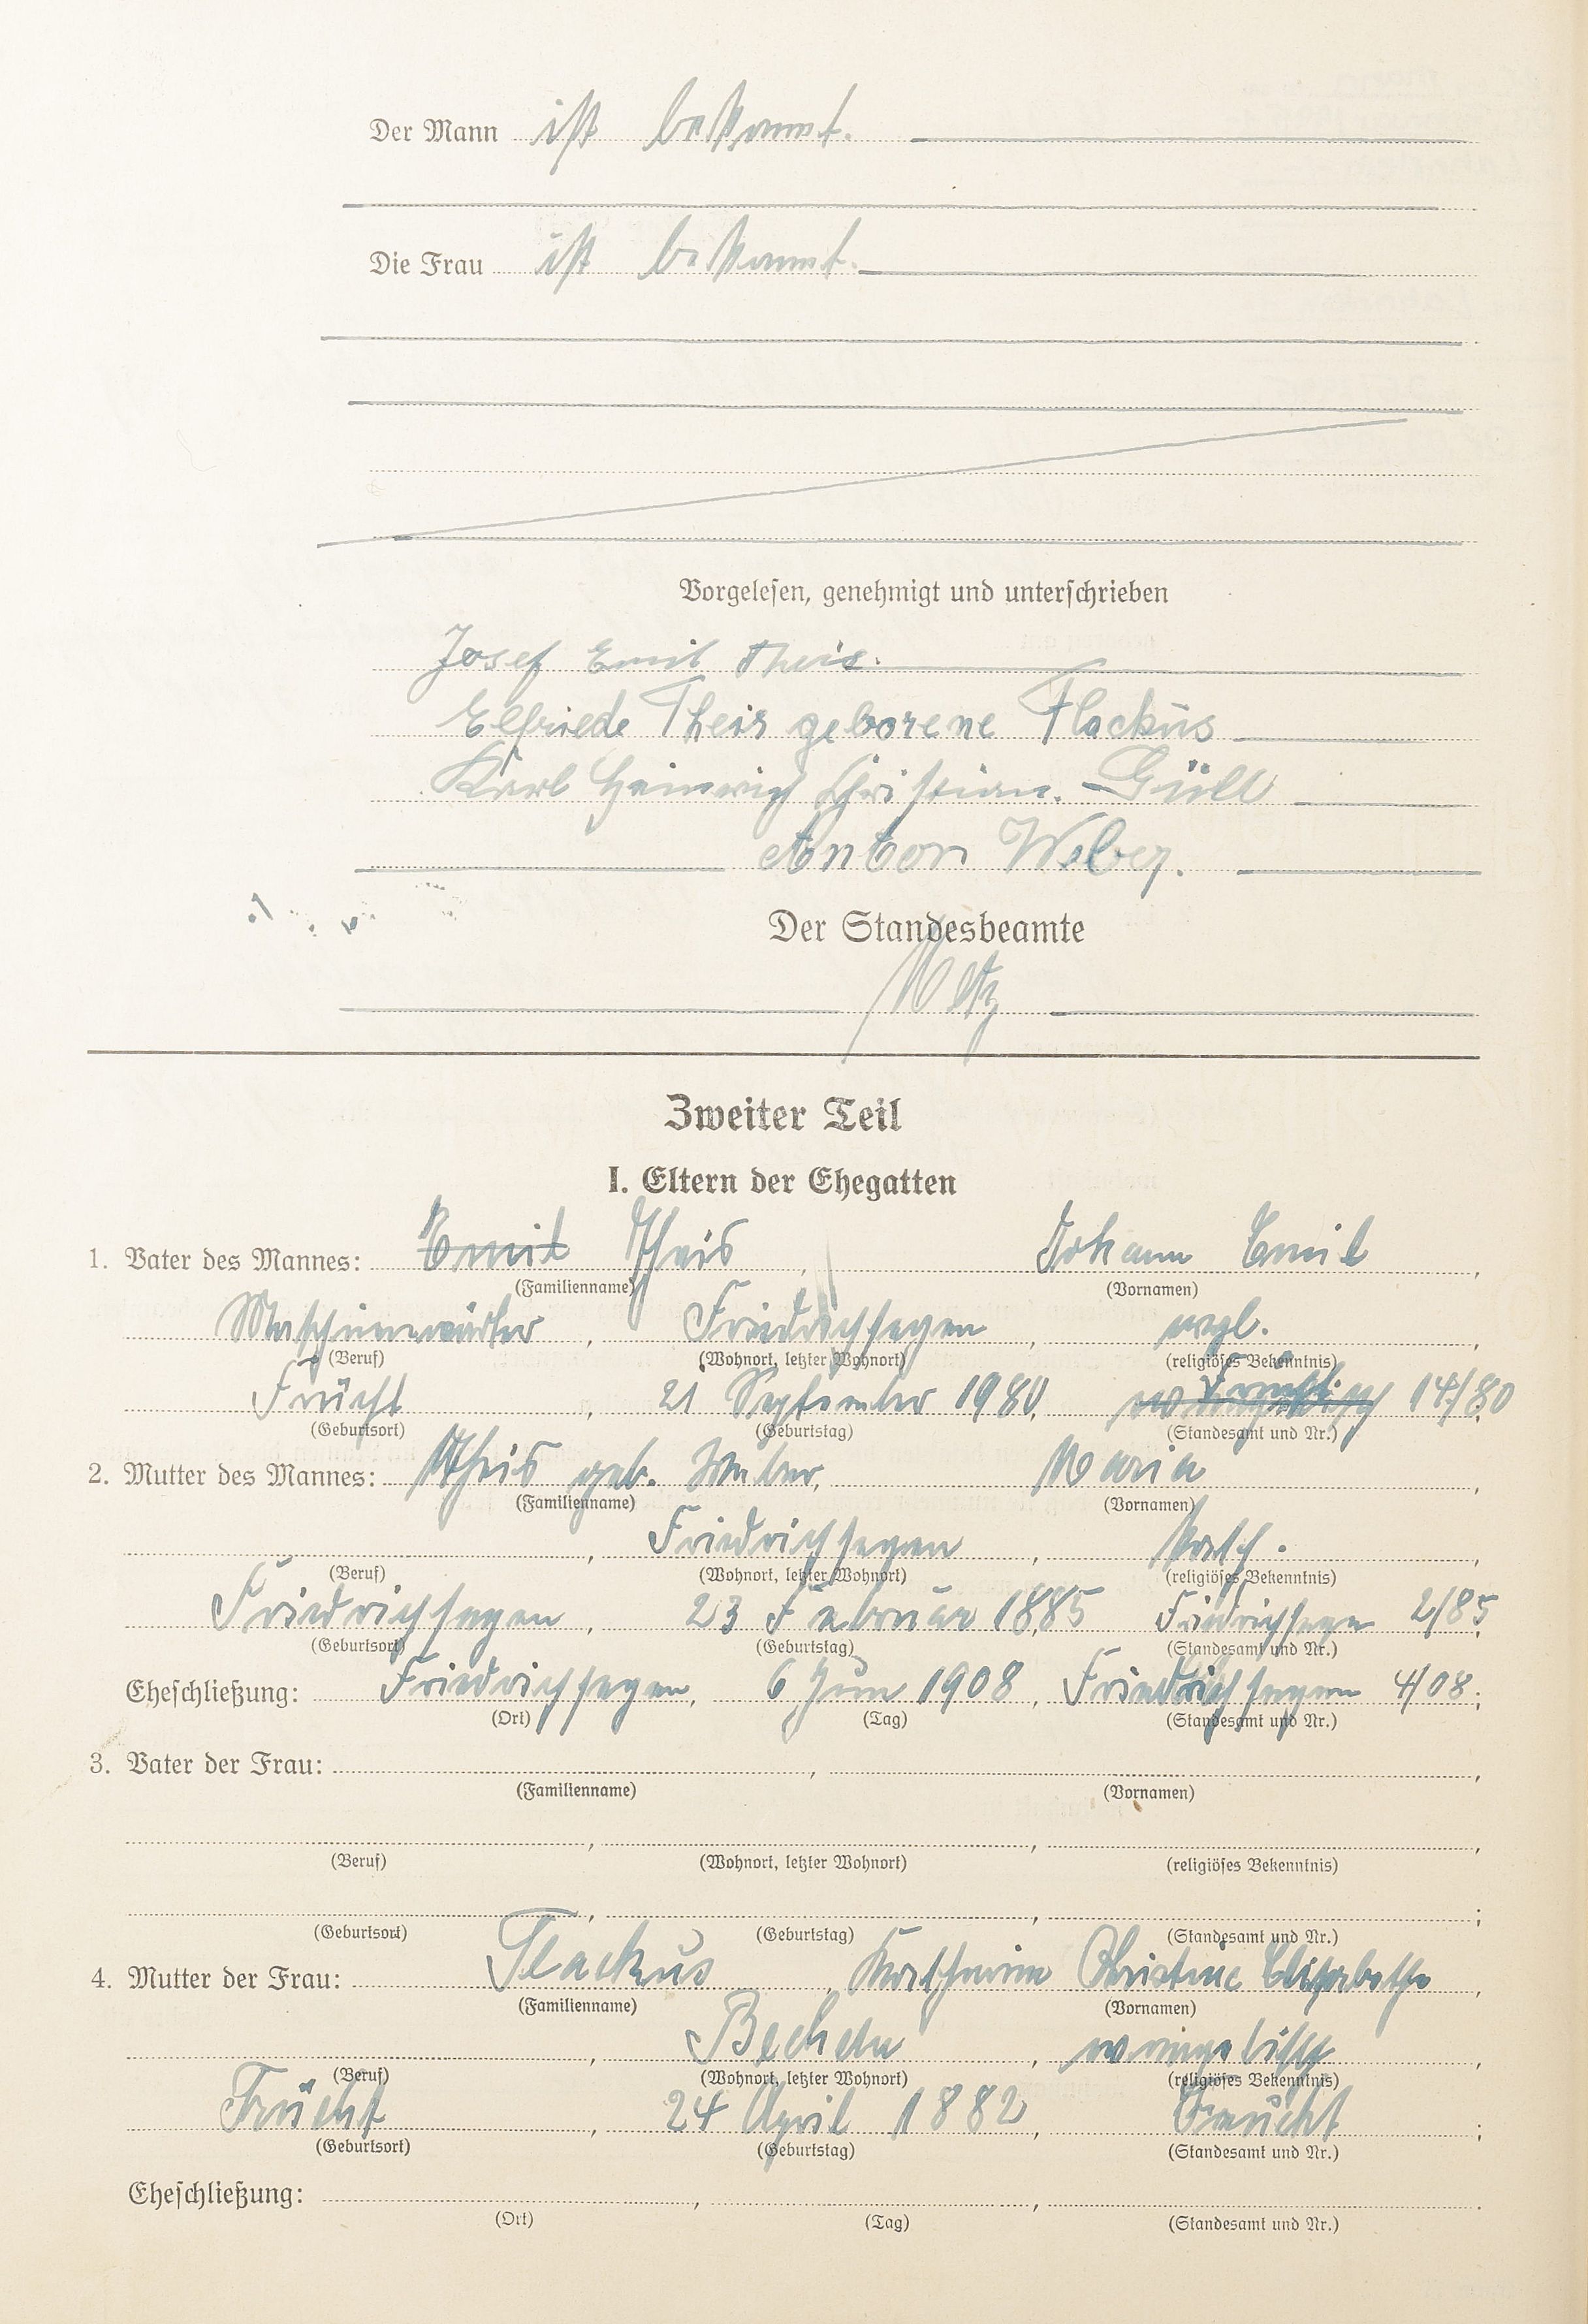 Der Mann ist bekannt.
Die Frau ist bekannt.
Vorgelesen, genehmigt und unterschrieben
Josef Emil Theis.
Elfriede Theis geborene Flackus
Karl Heinrich Christian Güll
Anton Weber.
Der Standesbeamte
Metz
Zweiter Teil
I. Eltern der Ehegatten
1. Vater des Mannes: Emil Theis, Johann Emil,
(Familienname) (Vornamen)
Maschinenwärter, Friedrichssegen, evgl.,
(Beruf) (Wohnort, letzter Wohnort) (religiöses Bekenntnis)
Frücht, 21 September 1980, Frücht 14/80
(Geburtsort) (Geburtstag) (Standesamt und Nr.)
2. Mutter des Mannes: Theis geb. Weber, Maria,
(Familienname) (Vornamen)
Friedrichssegen, kath.,
(Beruf) (Wohnort, letzter Wohnort) (religiöses Bekenntnis)
Friedrichssegen, 23 Februar 1885 Friedrichssegen 2/85;
(Geburtsort) (Geburtstag) (Standesamt und Nr.)
Eheschließung: Friedrichssegen, 6 Juni 1908, Friedrichssegen 4/08.
(Ort) (Tag) (Standesamt und Nr.)
3. Vater der Frau: , ,
(Familienname) (Vornamen)
, , ,
(Beruf) (Wohnort, letzter Wohnort) (religiöses Bekenntnis)
, , ;
(Geburtsort) (Geburtstag) (Standesamt und Nr.)
4. Mutter der Frau: Flackus, Katharina Christine Elisabethe,
(Familienname) (Vornamen)
, Becheln, evangelisch,
(Beruf) (Wohnort, letzter Wohnort) (religiöses Bekenntnis)
Frücht, 24 April 1882, Frücht;
(Geburtsort) (Geburtstag) (Standesamt und Nr.)
Eheschließung: , , .
(Ort) (Tag) (Standesamt und Nr.)